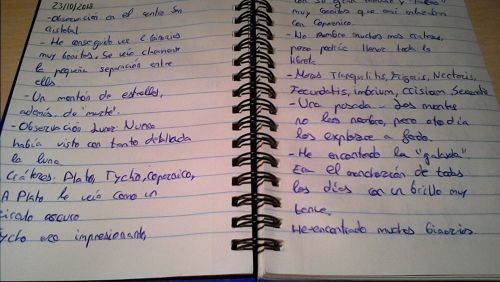 23/10/2013
-Observación en el centro San
Cristobal
- He conseguido ver 2 binarios
muy bonitos. Se veía claramente
la pequeña separación entre
ellos.
- Un montón de estrellas,
además de
- Observación Lunar: Nunca
había visto con tanto detallada
la luna.
Cráteres: Plato, Tycho, Copernico,
A Plato le veía como un
circulo oscuro
Tycho era impresionante,
con su gran
muy bonitos que casi
con Copernico.
- No nombro muchos más crateres,
pero podría llenar toda la
libreta.
- Mares: Tranquilitis, Frigoris, Nectaris,
Fecunditatis, imbrium, crisium Serenita
- Una pasada - Los montes
no los nombro, pero otro día
los exploraré a fondo.
- He encontrado la "galaxia"
En el de todos
los días con un brillo muy
tenue.
He encontrado muchos binarios.